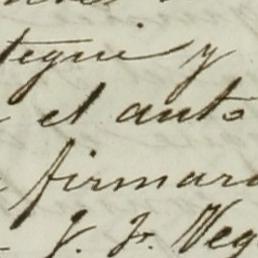 tegui y
el auto
firmaro
J. F. Veg